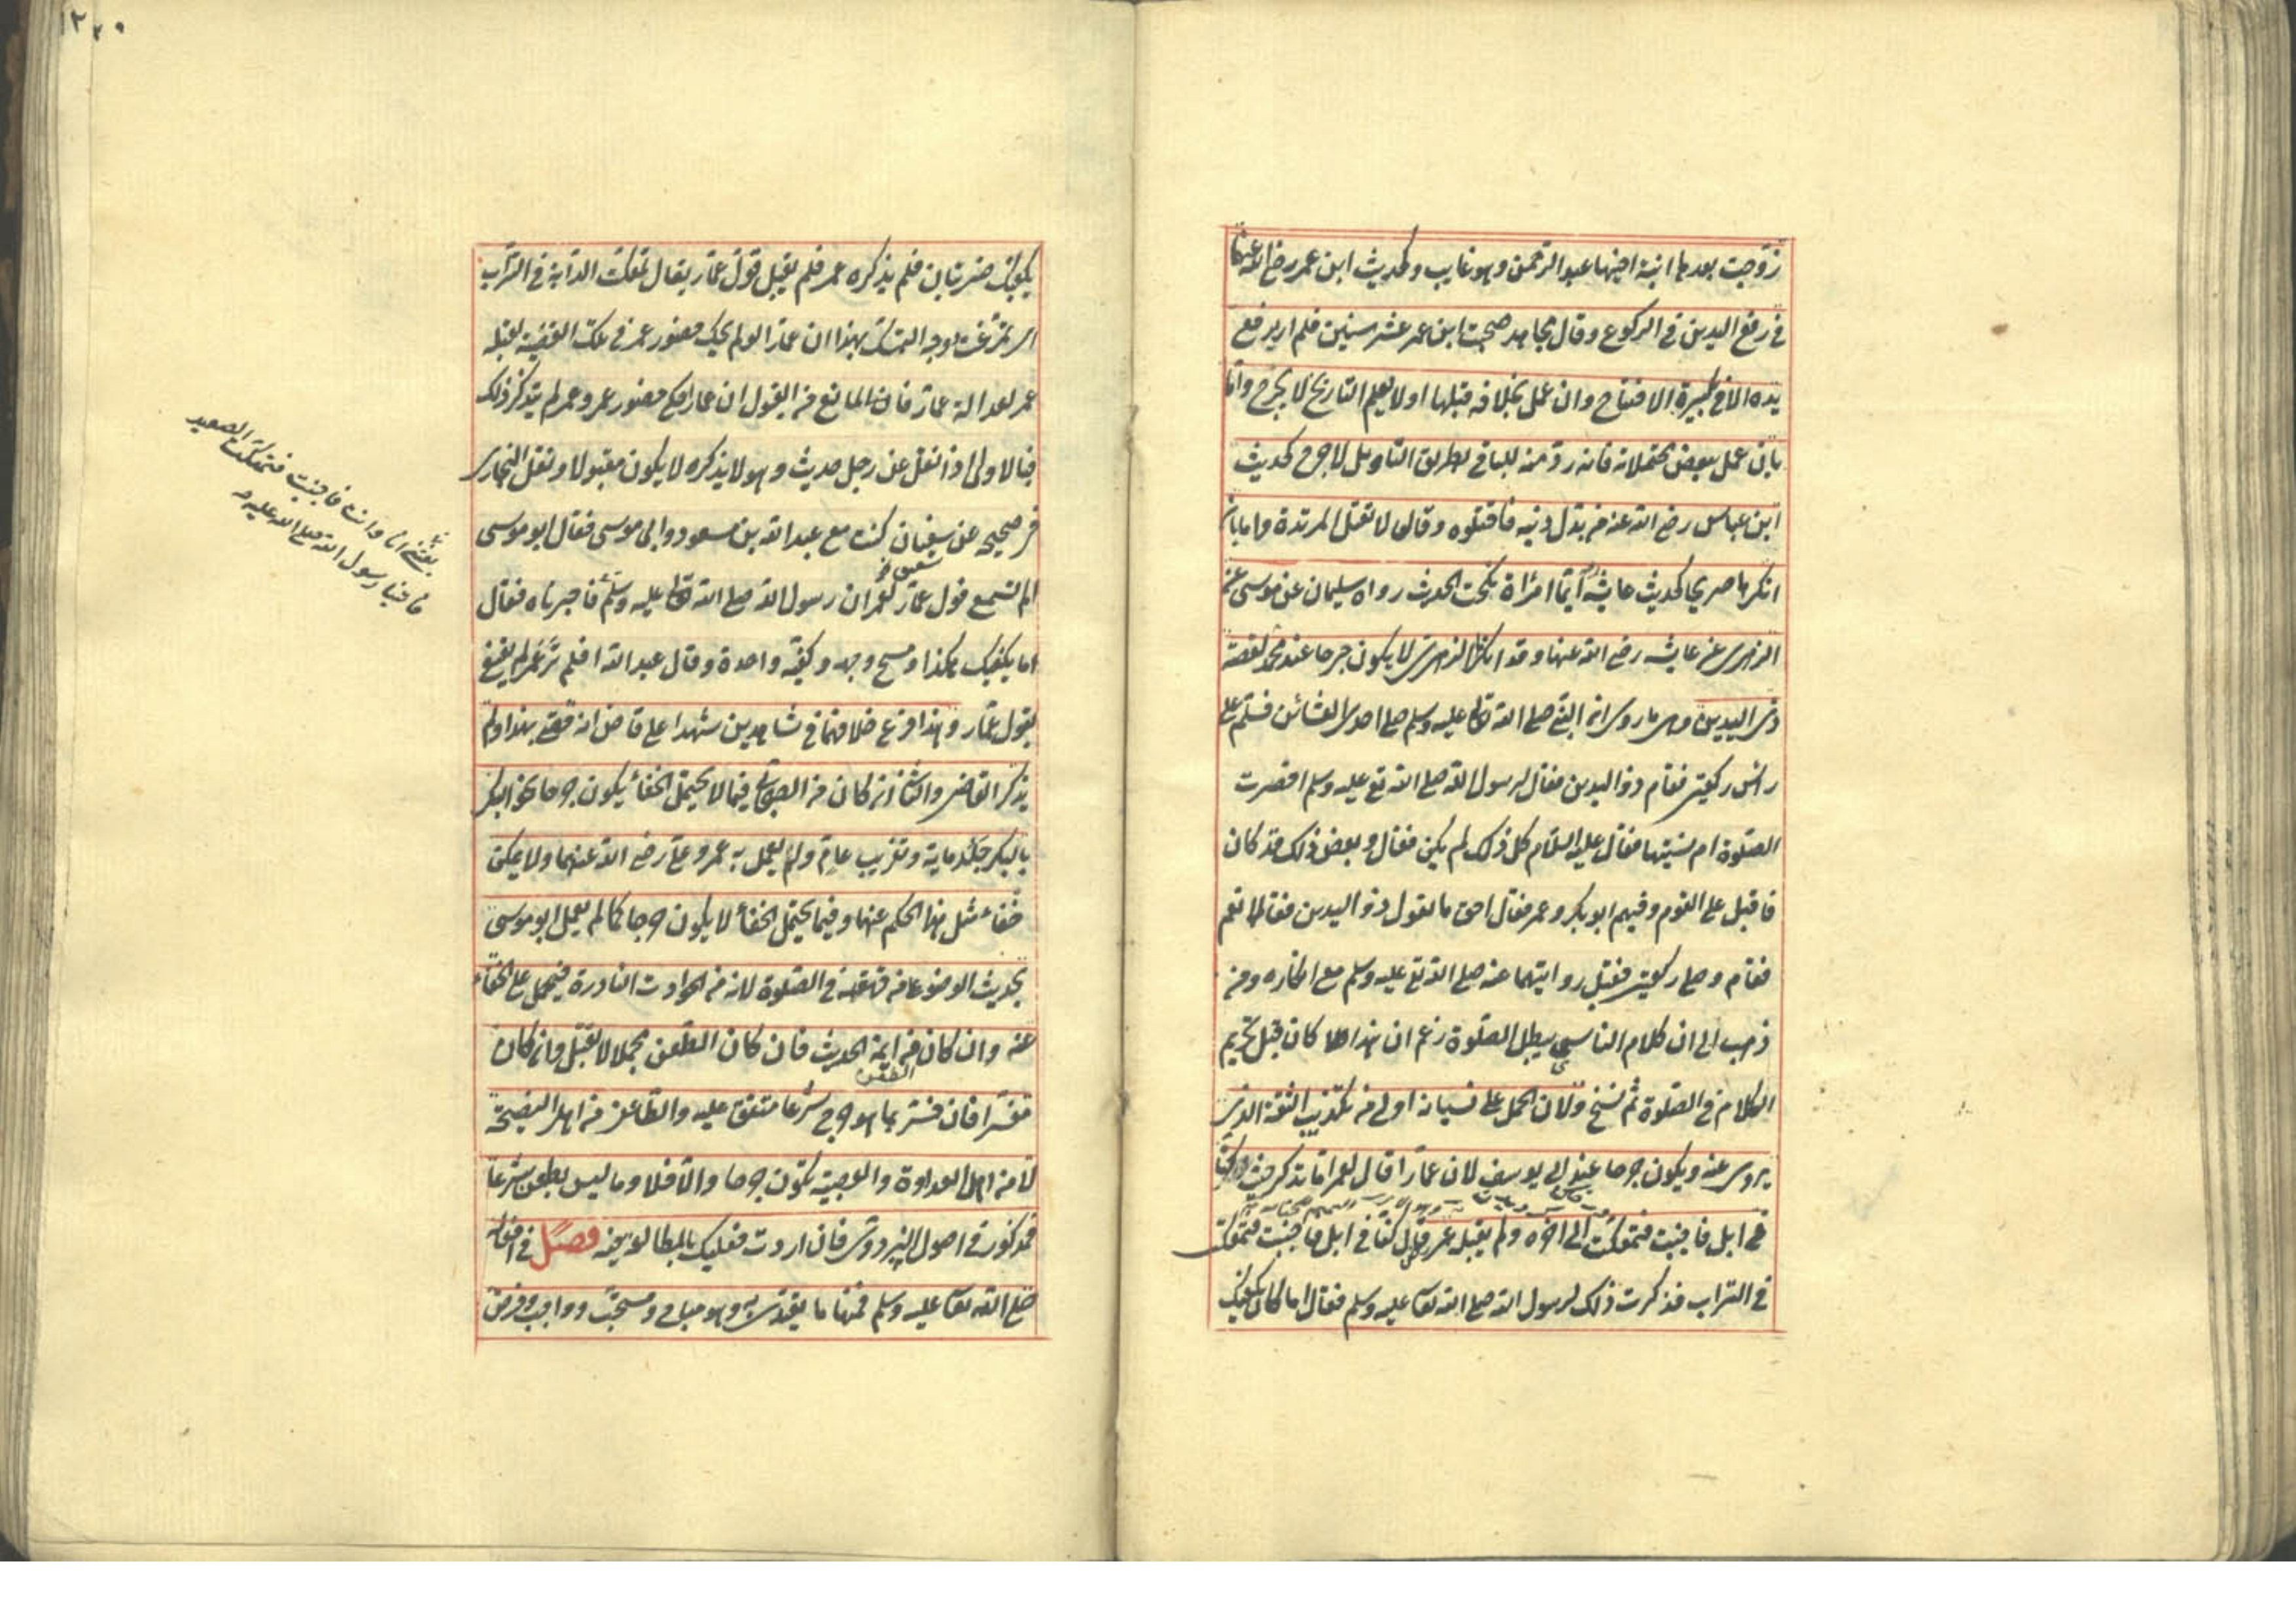 زوجت بعدها ابنة اخيها عبد الرحمن وهو غايب وكحديث ابن عمر رضي الله عنهما
في رفع اليدين في الركوع وقال مجاهد صحبت ابن عمر عشر سنين فلم اره يرفع
يده الا في تكبيرة الافتتاح وان عمل بخلافه قبلها او لا يعلم التاريخ لا يجرح واما
بان عمل ببعض محتملاته فانه رد منه للباقي بطريق التاويل لا جرح كحديث
ابن عباس رضي الله عنه من بدل دينه فاقتلوه وقال لا تقتل المرتدة واما بان
انكرها صريحا كحديث عايشة ايما امرأة نكحت الحديث رواه سليمان عن موسى عن
الزهري عن عايشه رضي الله عنها وقد انكر الزهري لا يكون جرحا عند محمد لقصة
ذي اليدين وهي ما روي ان النبي صلى الله تعالى عليه وسلم صلى احدى العشائين فسلم على
راس ركعتين فقام ذو اليدين فقال لرسول الله صلى الله تع عليه وسلم اقصرت
الصلوة ام نسيتها فقال عليه السلام كل ذلك لم يكن فقال وبعض ذلك قد كان
فاقبل على القوم وفيهم ابو بكر وعمر فقال احق ما يقول ذو اليدين فقالا نعم
فقام وصلى ركعتين فقبل روايتهما عنه صلى الله تع عليه وسلم مع انكاره ومن
ذهب الى ان كلام الناسي يبطل الصلوة زعم ان هذا كان قبل تحريم
الكلام في الصلوة ثم نسخ ولان الحمل على نسيانه اولى من تكذيب الثقة الذي
يروي عنه ويكون جرحا عند ابي يوسف لان عمارا قال لعمر اما تذكر حيث كنا
في ابل فاجنبت فتمعكت الى اخره ولم يقبله عمر قال كنا في ابل فاجنبت فتمعكت
في التراب فذكرت ذلك لرسول الله صلى الله تعا عليه وسلم فقال اما كان يكفيك
١٢٢٩
يكفيك ضربتان فلم يذكره عمر فلم يقبل قول عمار يقال تمعكت الدابة في التراب
اي تمرغت وجه التمسك بهذا ان عمارا لو لم يحك حضور عمر في تلك القضية لقبله
عمر لعدالة عمار فان المانع من القبول ان عمارا حكى حضور عمر وعمر لم يتذكر ذلك
فبالاولى اذا نقل عن رجل حديث وهو لا يذكره لا يكون مقبولا ونقل البخاري
في صحيحه عن سفيان كنت مع عبد الله بن مسعود وابي موسى فقال ابو موسى
شقيق
الم تسمع قول عمار لعمر ان رسول الله صلى الله تعالى عليه وسلم فاخبرناه فقال
بعثني انا وانت فاجنبت فتمعكت الصعيد
فاتينا رسول الله صلى الله عليه
انما يكفيك هكذا ومسح وجهه وكفيه واحدة وقال عبد الله افلم تر عمر لم يقنع
بقول عمار وهذا فرع خلافهما في شاهدين شهدا على قاض انه قضى بهذا ولم
يذكر القاضي والثاني ان كان من الصحابي فيما لا يحتمل الخفاء يكون جرحا نحو البكر
بالبكر جلد ماية وتغريب عام ولم يعمل به عمر وعلي رضي الله عنهما ولا يمكن
خفاء مثل هذا الحكم عنهما وفيما يحتمل الخفاء لا يكون جرحا كما لم يعمل ابو موسى
بحديث الوضوء على من قهقهه في الصلوة لانه من الحوادث النادرة فيحمل على الخفاء
عنه وان كان من ايمة الحديث فان كان الطعن مجملا لا يقبل وان كان
الطعن
مفسرا فان فسر بما هو جرح شرعا متفق عليه والطاعن من اهل النصيحة
لا من اهل العداوة والعصبية يكون جرحا والا فلا وما ليس بطعن شرعا
فمذكور في اصول البزدوي فان اردت فعليك بالمطالعة فيه فصل في افعاله
صلى الله تعا عليه وسلم فمنها ما يقتدى به وهو مباح ومستحب وواجب وفرض